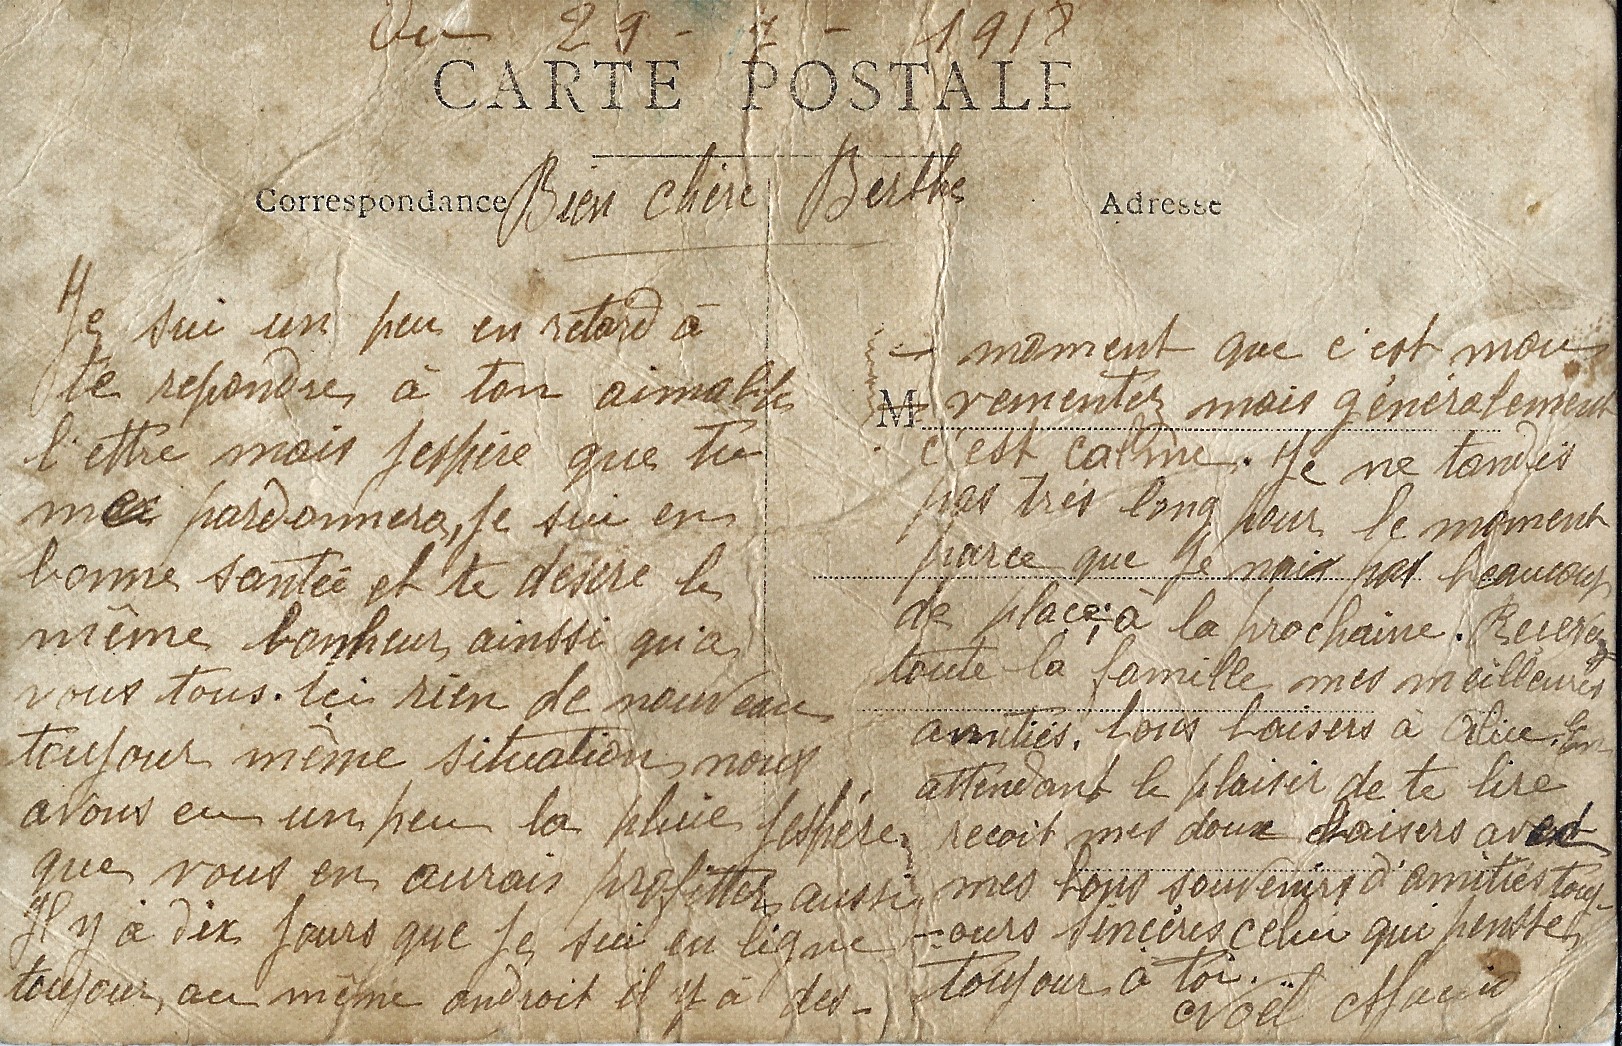 Du 29 - 7 - 1918
CARTE POSTALE
Correspondance
Adresse
Bien chère Berthe
Je sui un peu en retard à
te repondre à ton aimable
l'ettre mais jespére que tu
me pardonnera, je sui en
bonne santée et te désire le
même bonheur ainssi qu'a
vous tous. Ici rien de nouveau
toujour même situation nous
avons eu un peu la pluie jespére
que vous en aurais profitter aussi
Il y à dix jours que je sui en ligne
toujour, au même androit il y à des-
- moment que c'est mou
M
vementer mais généralement
c'est calme. Je ne tandis
pas trés long pour le moment
parce que je nais pas beaucoup
de place, à la prochaine.
toute la famille mes meilleures
amitiés. bons baisers à Alice. En
attendant le plaisir de te lire
recoit mes doux baisers avec
mes bons souvenirs d'amitiés touj-
-ours sincéres celui qui pensse
toujour à toi.
Noël